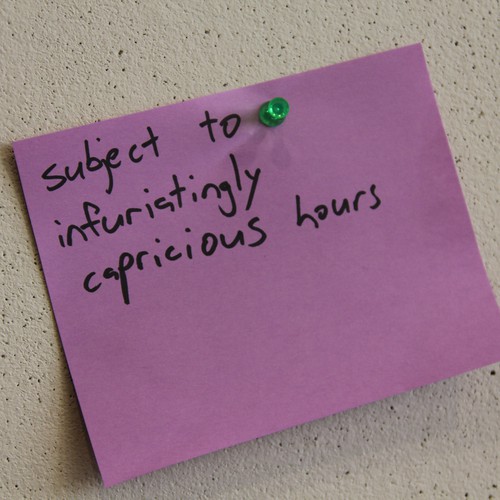 subject to
infuriatingly
capricious hours